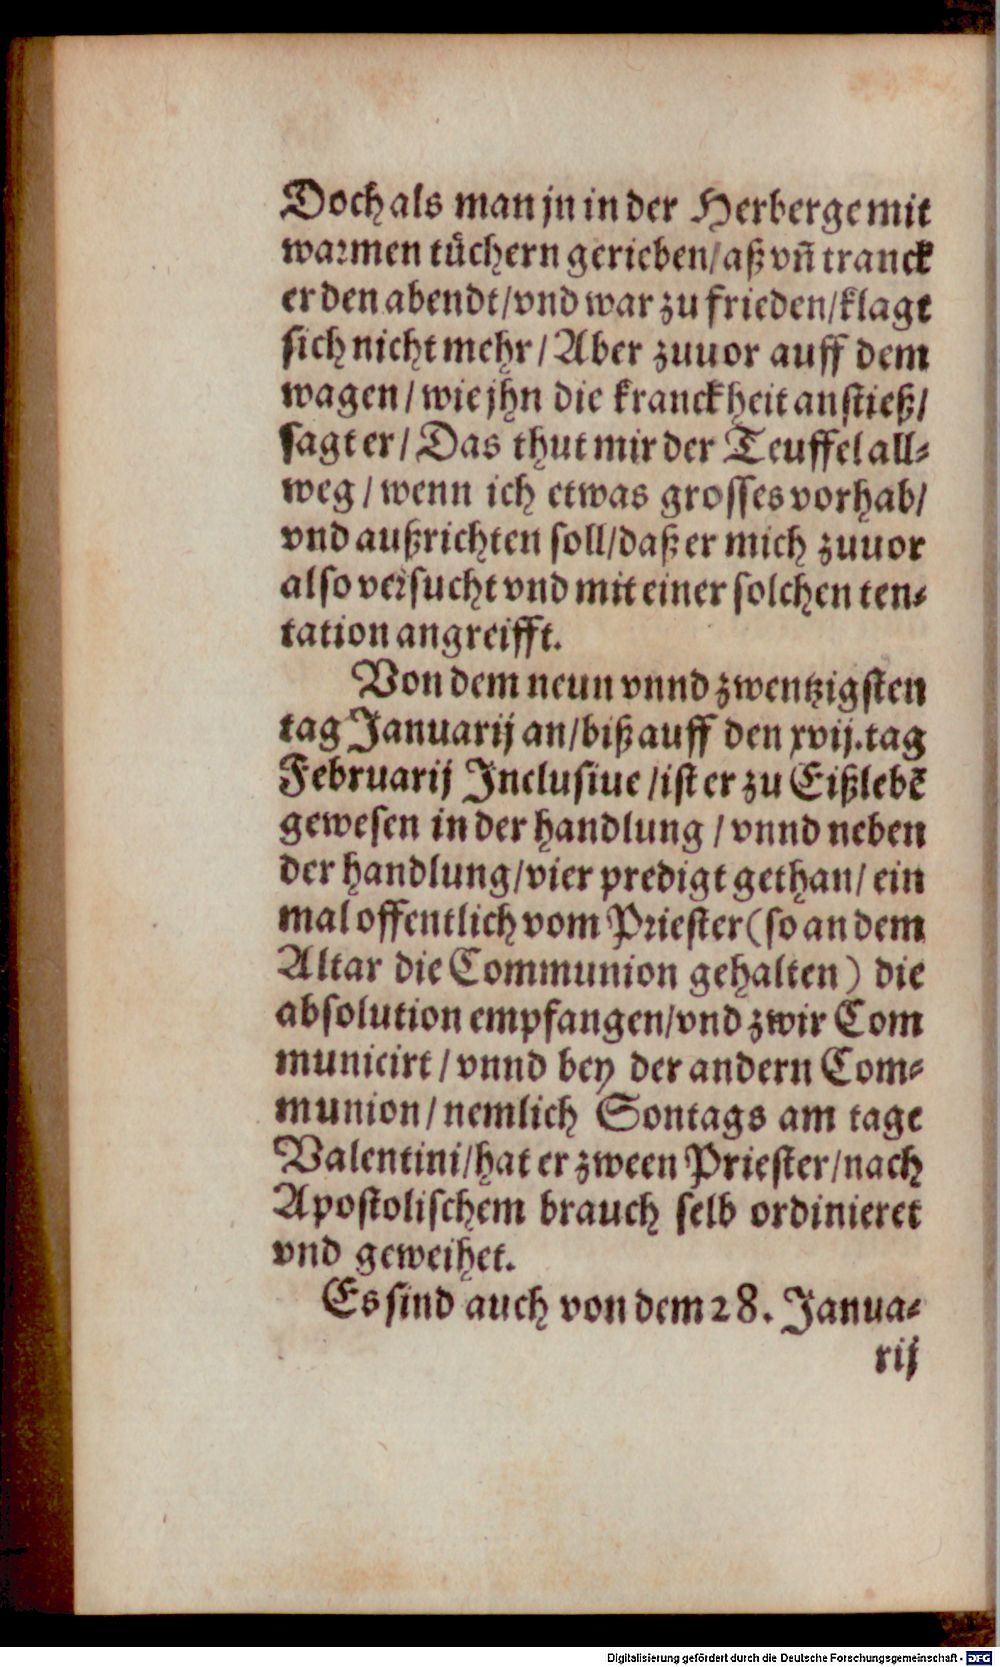 Doch als man jn in der Herberge mit
warmen tüchern gerieben/ aß vñ tranck
er den abendt/ vnd war zu frieden/ klagt
sich nicht mehr/ Aber zuuor auff dem
wagen/ wie jhn die kranckheit anstieß/
sagt er/ Das thut mir der Teuffel all-
weg/ wenn ich etwas grosses vorhab/
vnd außrichten soll/ daß er mich zuuor
also versucht vnd mit einer solchen ten-
tation angreifft.
Von dem neun vnnd zwentzigsten
tag Januarij an/ biß auff den xvij. tag
Februarij Inclusiue/ ist er zu Eißlebẽ
gewesen in der handlung/ vnnd neben
der handlung/ vier predigt gethan/ ein
mal offentlich vom Priester (so an dem
Altar die Communion gehalten) die
absolution empfangen/ vnd zwir Com
municirt/ vnnd bey der andern Com-
munion/ nemlich Sontags am tage
Valentini/ hat er zween Priester/ nach
Apostolischem brauch selb ordinieret
vnd geweihet.
Es sind auch von dem 28. Janua-
rij
Digitalisierung gefördert durch die Deutsche Forschungsgemeinschaft - DFG